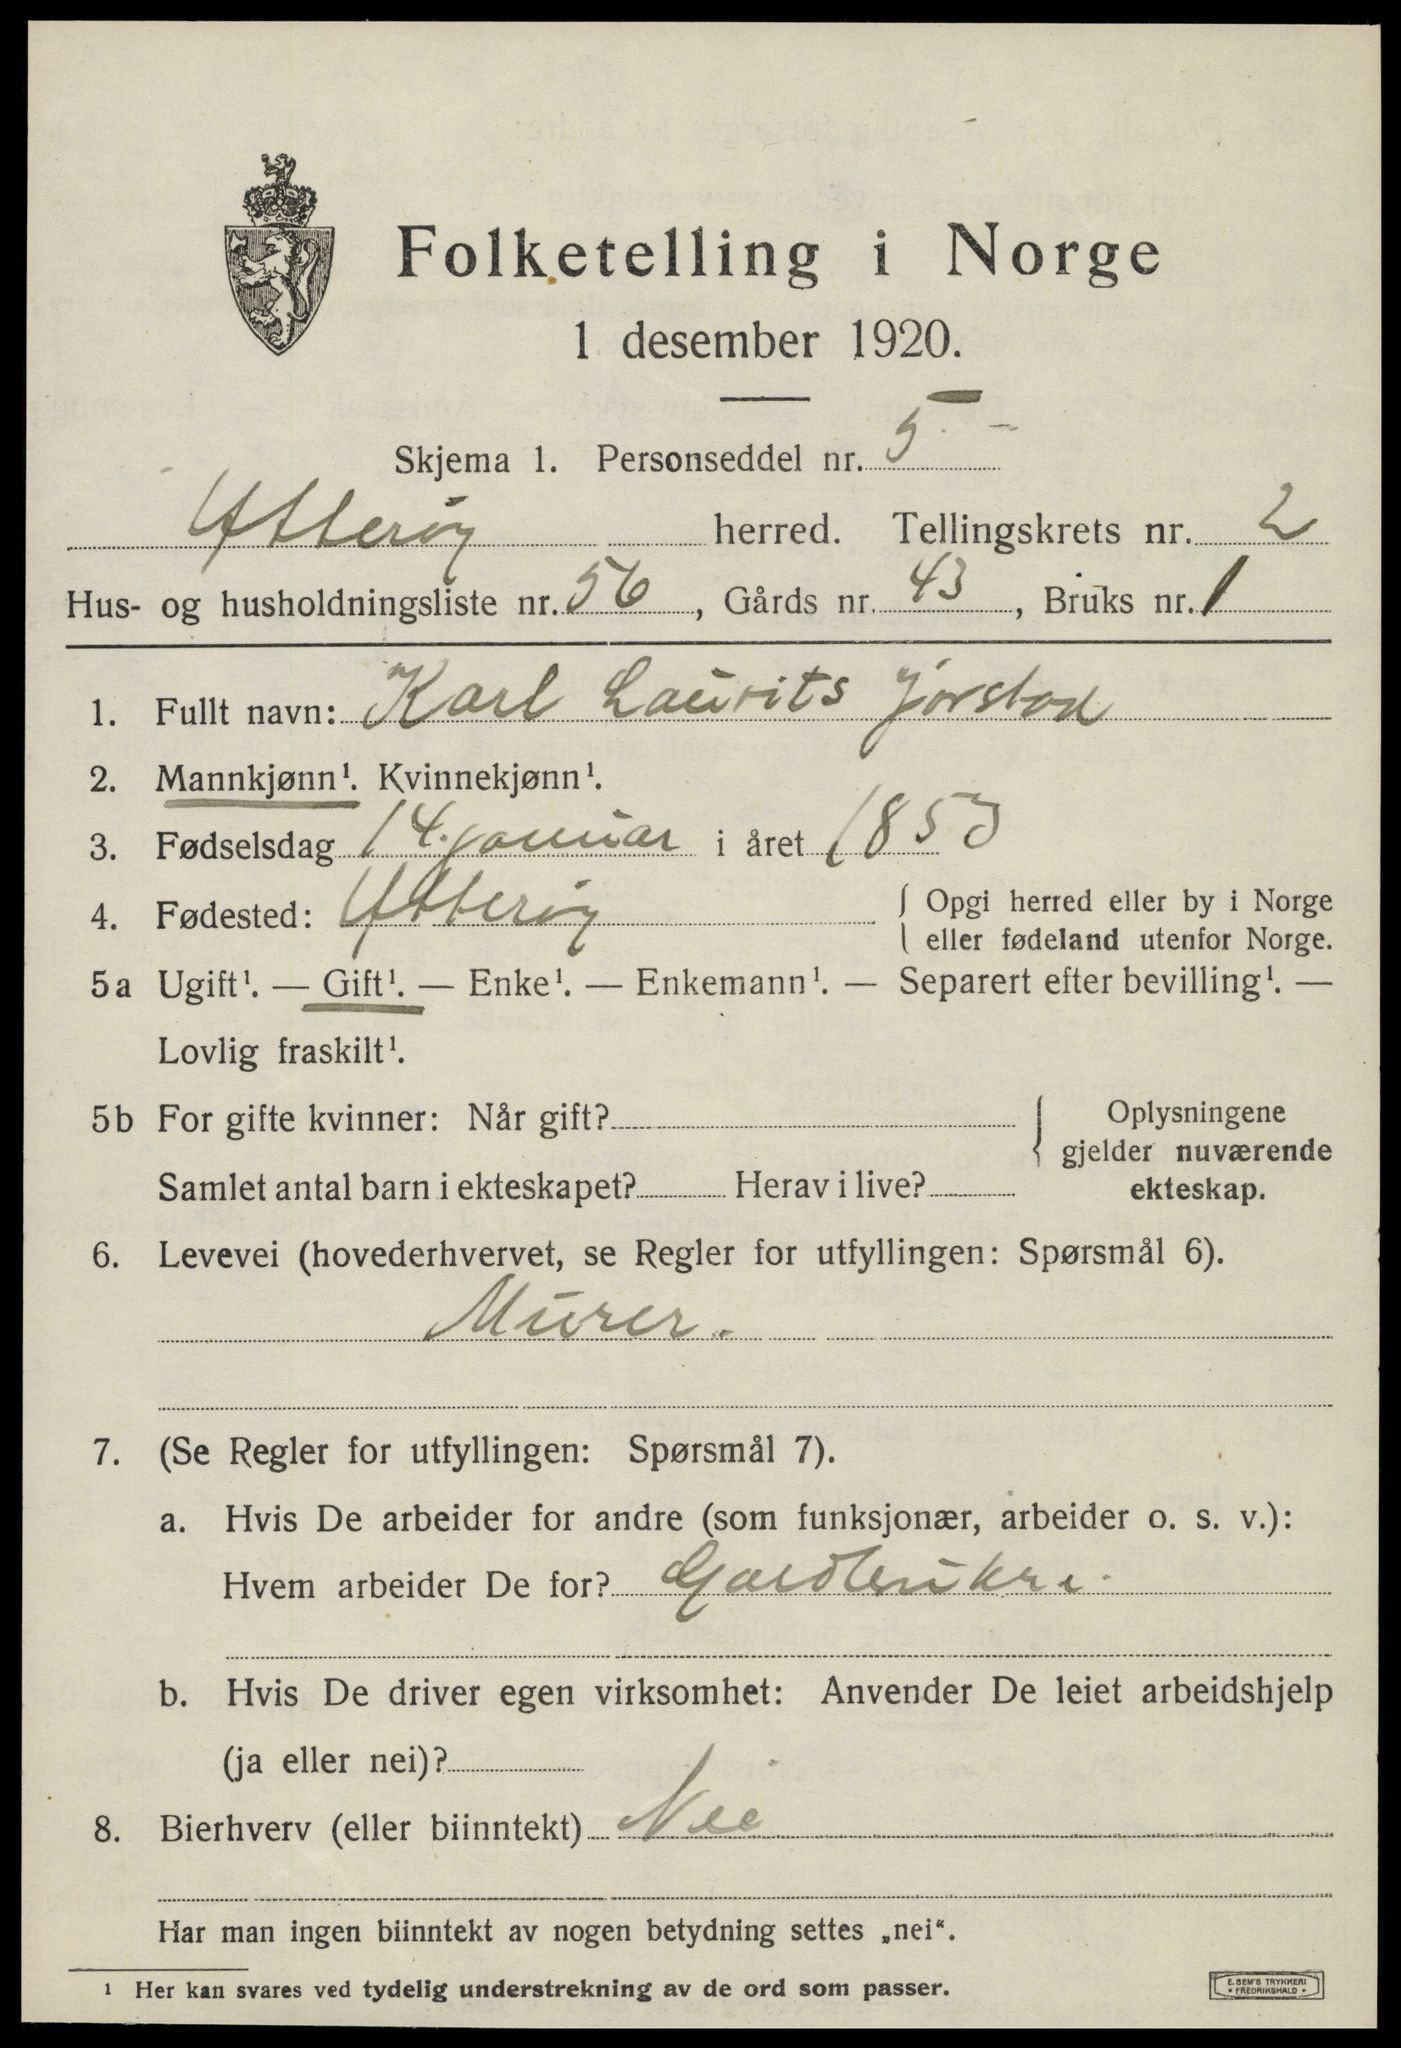 Folketelling i Norge
1 desember 1920.
Skjema 1. Personseddel nr. 5
Ytterøy herred. Tellingskrets nr. 2
Hus- og husholdningsliste nr. 56, Gårds nr. 43, Bruks nr. 1
1. Fullt navn: Karl Laurits Jørstad
2. Mannkjønn¹. Kvinnekjønn¹.
3. Fødselsdag 14. januar i året 1853
4. Fødested: Ytterøy { Opgi herred eller by i Norge
eller fødeland utenfor Norge.
5a Ugift¹. — Gift¹. — Enke¹. — Enkemann¹. — Separert efter bevilling¹. —
Lovlig fraskilt¹.
5b For gifte kvinner: Når gift? { Oplysningene
gjelder nuværende
Samlet antal barn i ekteskapet? Herav i live? ekteskap.
6. Levevei (hovederhvervet, se Regler for utfyllingen: Spørsmål 6).
Murer.
7. (Se Regler for utfyllingen: Spørsmål 7).
a. Hvis De arbeider for andre (som funksjonær, arbeider o. s. v.):
Hvem arbeider De for?
b. Hvis De driver egen virksomhet: Anvender De leiet arbeidshjelp
(ja eller nei)?
8. Bierhverv (eller biinntekt) Nei
Har man ingen biinntekt av nogen betydning settes „nei“.
¹ Her kan svares ved tydelig understrekning av de ord som passer.
E. SEM'S TRYKKERI
* FREDRIKSHALD *